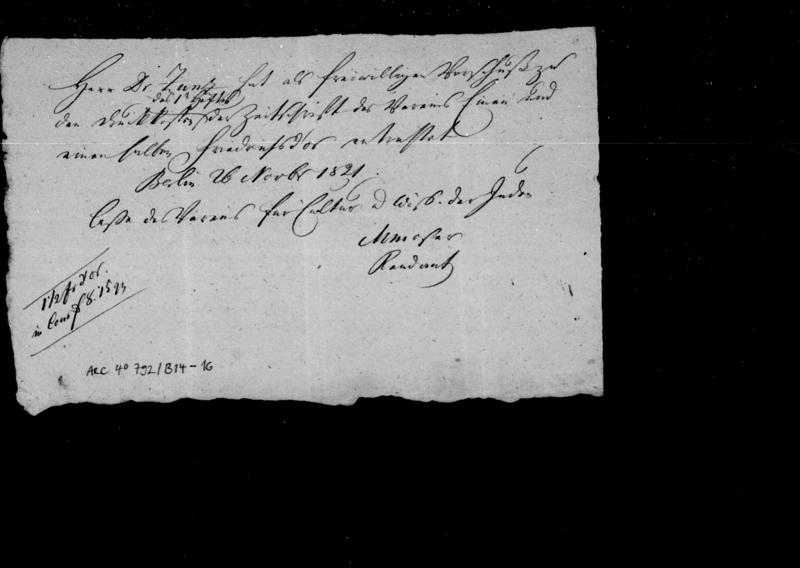 Herr Dr. Zunz hat als freiwilligen Vorschuß zu
des 1n Heftes
den Druckkosten der Zeitschrift des Vereins Einen und
einen halben Friedrichsd'or entrichtet
Berlin 26 Novbr 1821.
Casse des Vereins für Cultur d Wiss. der Juden
MMoser
Rendant
1 1/2 frdor.
in Cour
ARC 4° 792/B14-16